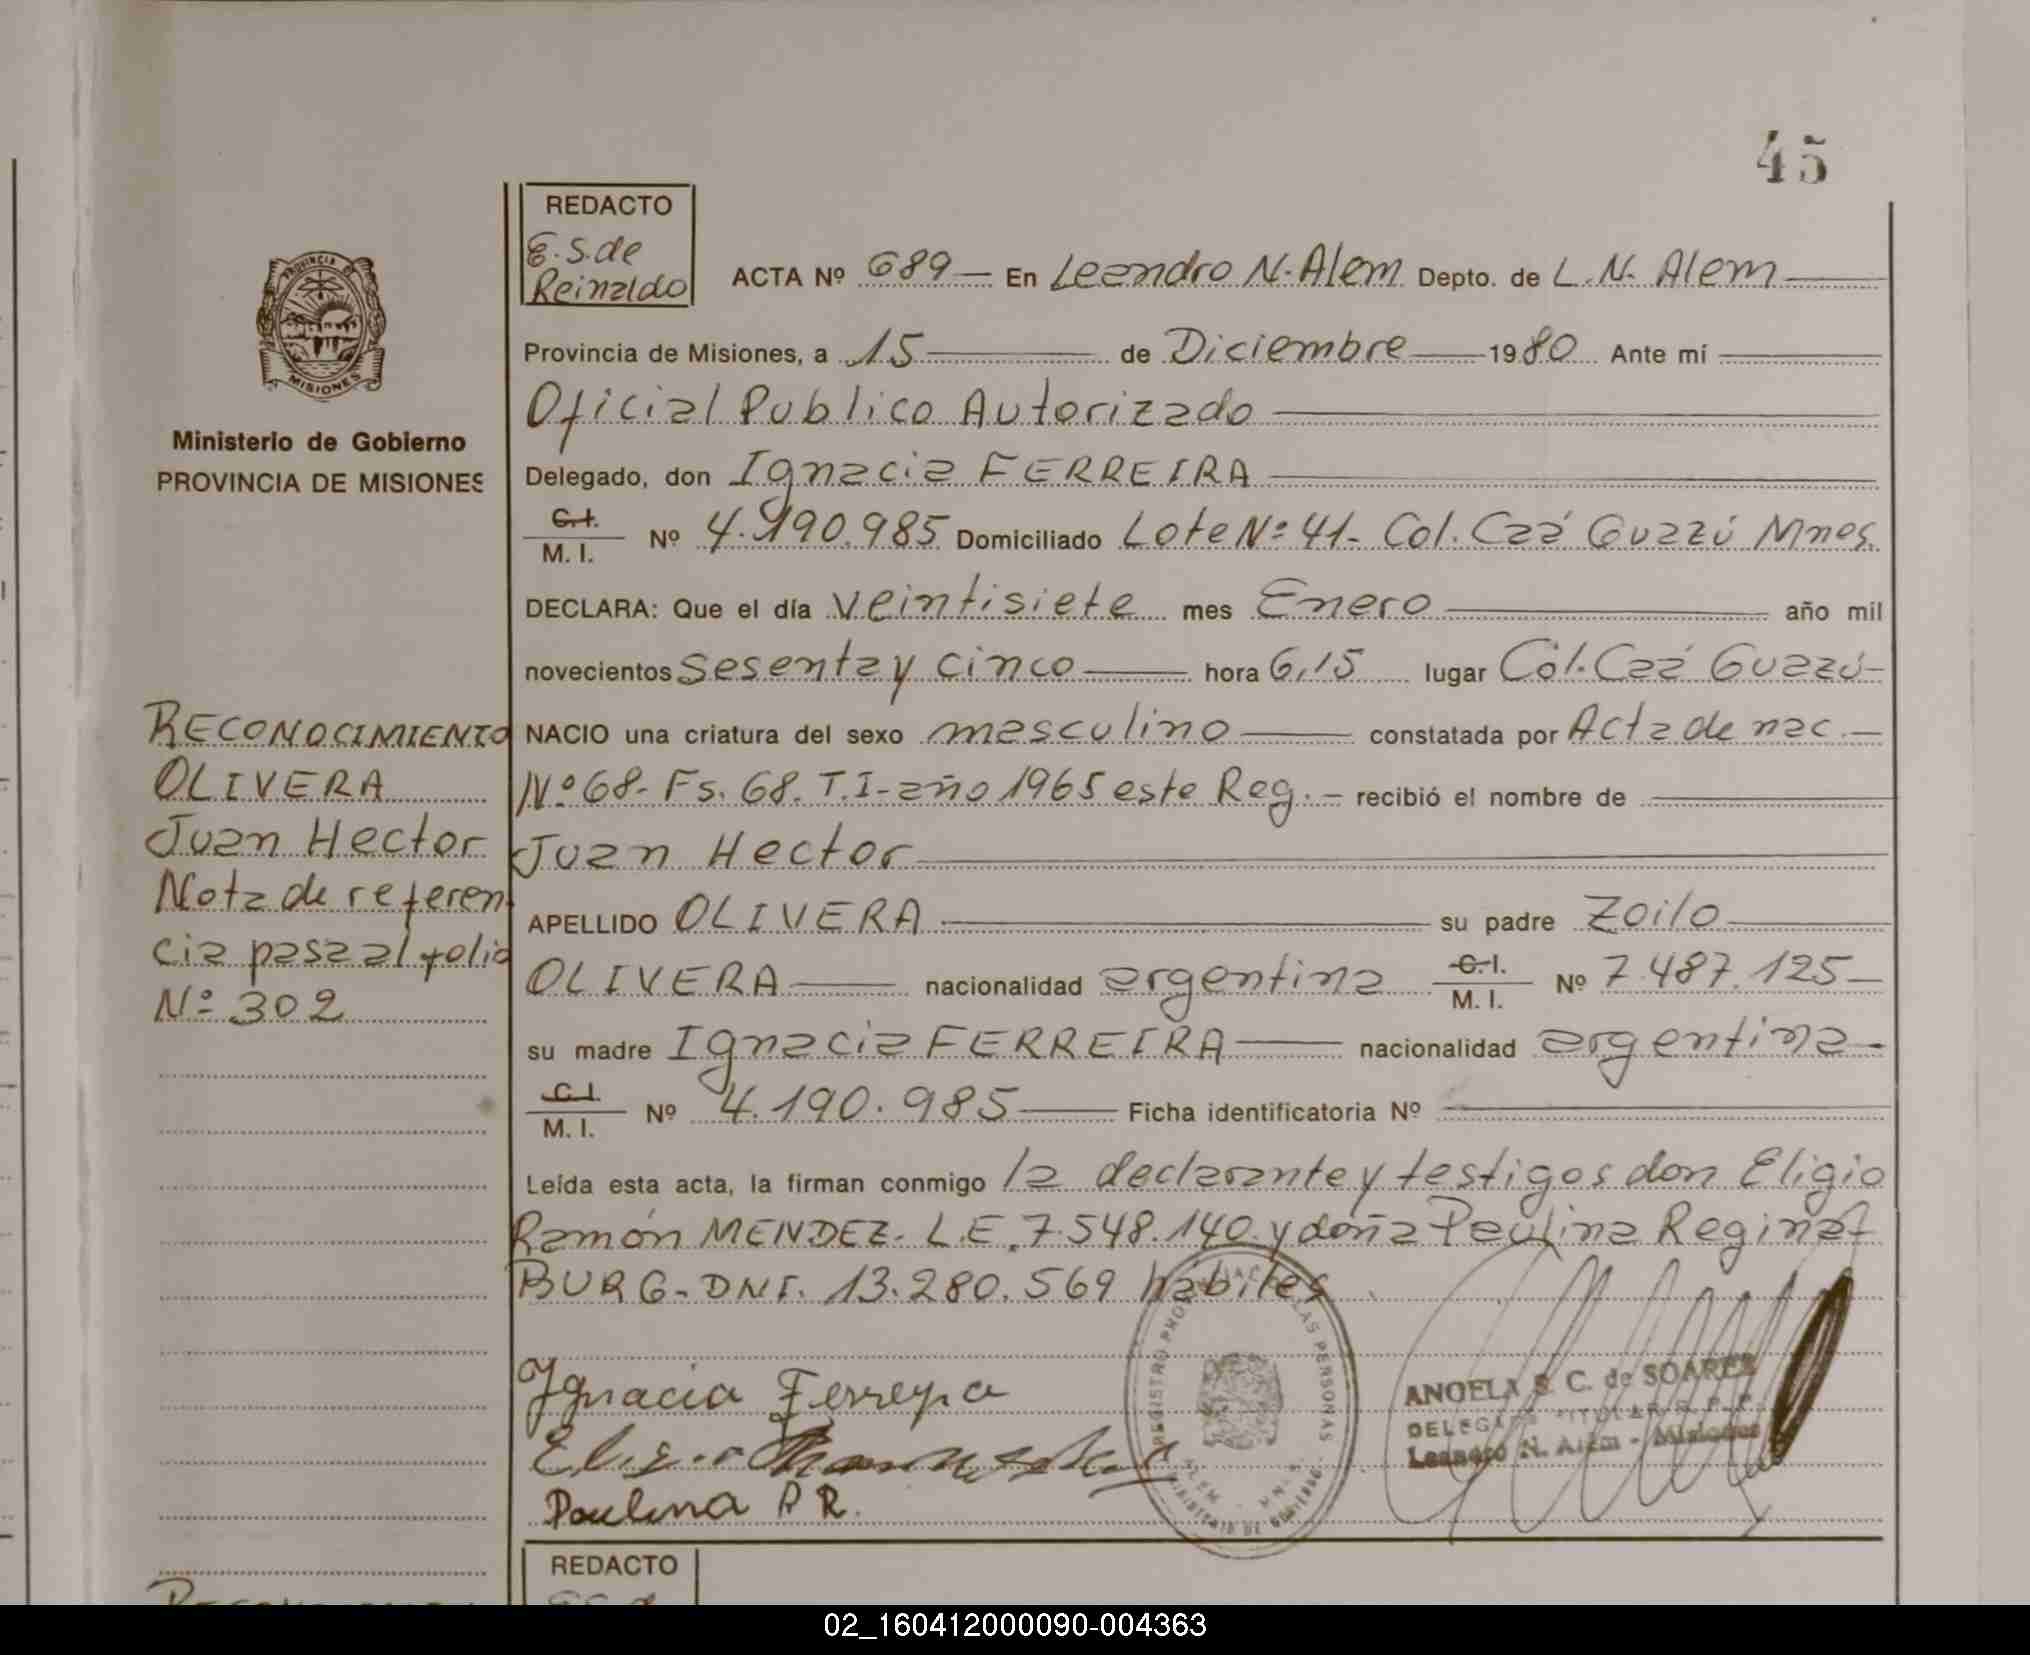 45
REDACTO
E.S.de
Reinaldo
ACTA Nº 689 — En Leandro N. Alem Depto. de L.N. Alem
Provincia de Misiones, a 15 de Diciembre 1980 Ante mí
Oficial Publico Autorizado
Delegado, don Ignacia FERREIRA
C.I. / M. I. Nº 4.190.985 Domiciliado Lote Nº 41- Col. Caá Guazú Mnes.
DECLARA: Que el día veintisiete mes Enero año mil
novecientos sesenta y cinco hora 6,15 lugar Col. Caá Guazú
NACIO una criatura del sexo masculino constatada por Acta de nac.
Nº 68- Fs. 68. T.I- año 1965 este Reg. - recibió el nombre de
Juan Hector
APELLIDO OLIVERA su padre Zoilo
OLIVERA nacionalidad argentina C.I. / M. I. Nº 7.487.125
su madre Ignacia FERREIRA nacionalidad argentina
C.I. / M. I. Nº 4.190.985 Ficha identificatoria Nº
Leída esta acta, la firman conmigo la declarante y testigos don Eligio
Ramón MENDEZ- L.E. 7.548.140 y doña Paulina Regina
BURG- DNI. 13.280.569 habiles
Ignacia Ferreyra
Paulina R.
ANGELA S. C. de SOAREZ
DELEGADA TITULAR R. P. P.
Leandro N. Alem - Misiones
REGISTRO PROVINCIAL DE LAS PERSONAS
MINISTERIO DE GOBIERNO
ALEM - MNES
PROVINCIA DE
MISIONES
Ministerio de Gobierno
PROVINCIA DE MISIONES
RECONOCIMIENTO
OLIVERA
Juan Hector
Nota de referen
cia pasa al folio
Nº 302
REDACTO
02_160412000090-004363